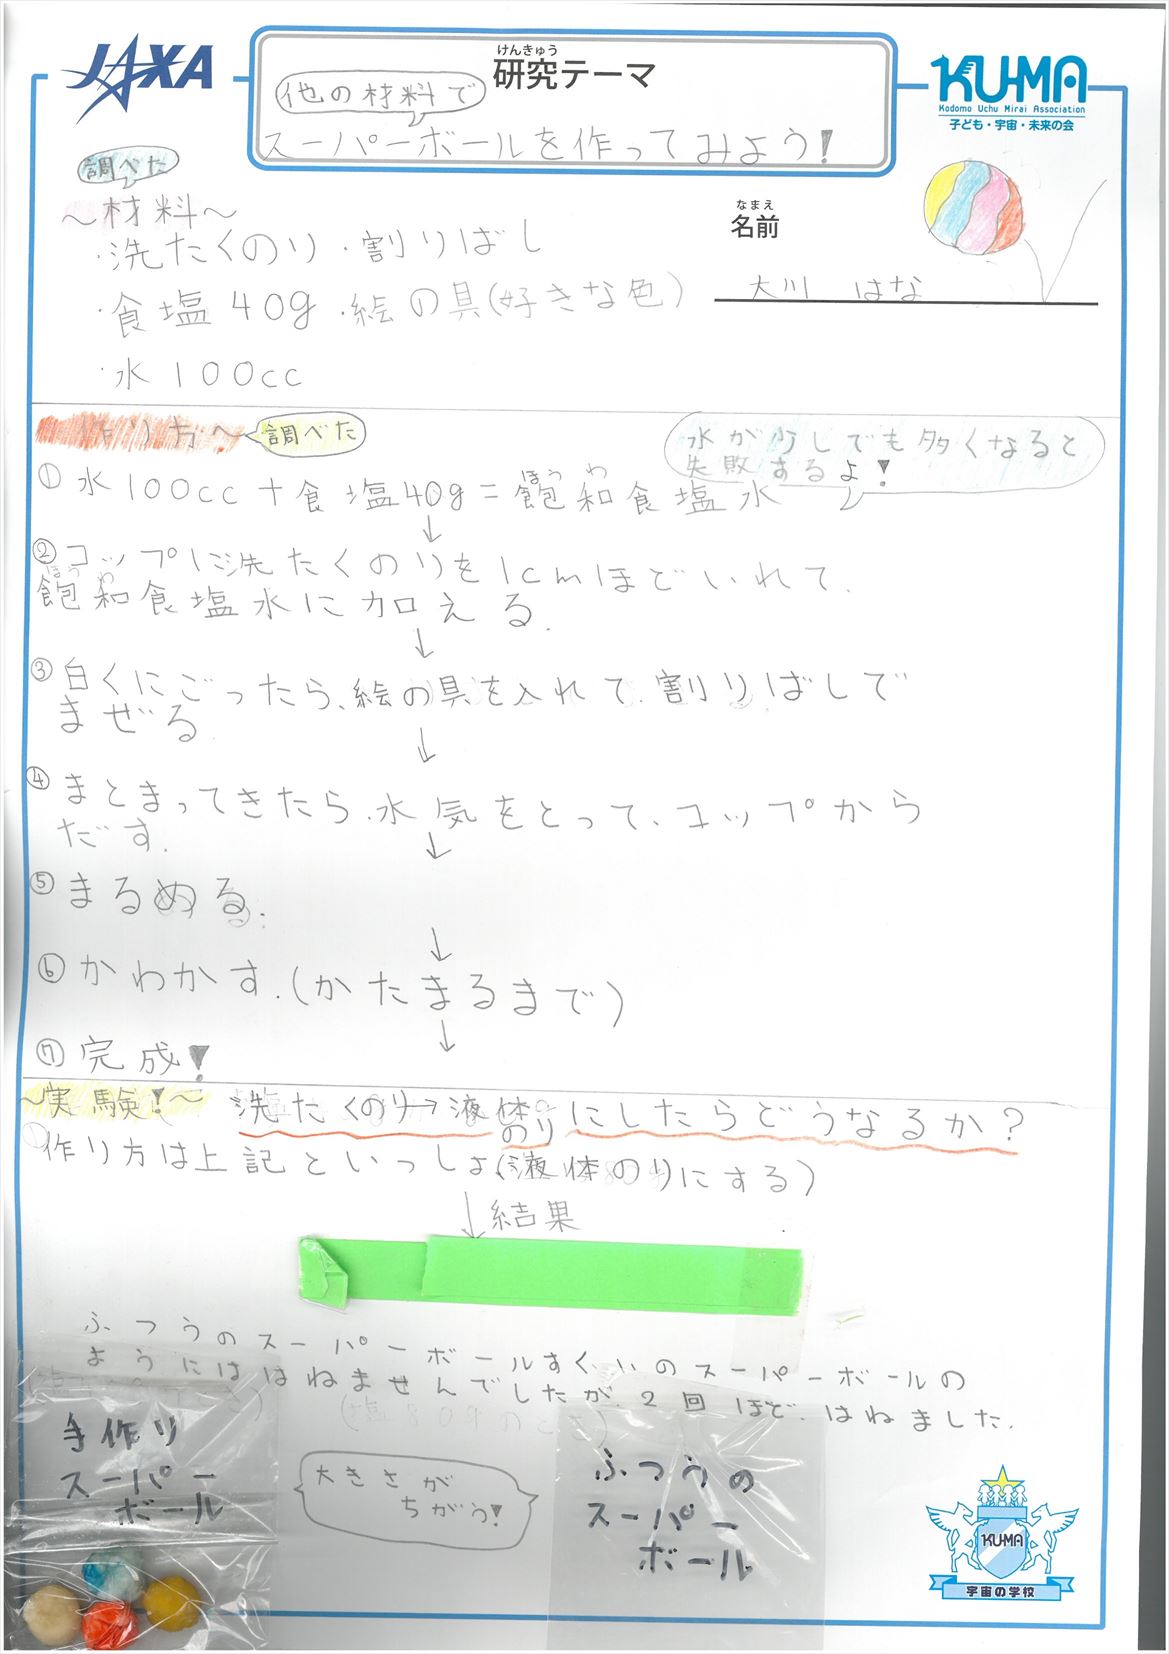 JAXA
けんきゅう
研究テーマ
KU-MA
Kodomo Uchu Mirai Association
子ども・宇宙・未来の会
他の材料で
スーパーボールを作ってみよう!
調べた
～材料～
・洗たくのり ・割りばし
・食塩 40g ・絵の具(好きな色)
・水 100cc
なまえ
名前
大川 はな
作り方～
調べた
水が少しでも多くなると
失敗するよ!
ほう わ
① 水100cc+食塩40g=飽和食塩水
↓
② コップに洗たくのりを1cmほどいれて、
ほう わ
飽和食塩水に加える。
↓
③ 白くにごったら、絵の具を入れて、割りばしで
まぜる。
↓
④ まとまってきたら、水気をとって、コップから
だす。
↓
⑤ まるめる。
↓
⑥ かわかす。(かたまるまで)
↓
⑦ 完成!
～実験!～ 洗たくのり→液体のりにしたらどうなるか?
作り方は上記といっしょ(液体のりにする)
↓ 結果
ふつうのスーパーボールすくいのスーパーボールの
ようにははねませんでしたが、2回ほど、はねました。
(塩80gのとき)
手作り
スーパー
ボール
大きさが
ちがう!
ふつうの
スーパー
ボール
KU-MA
宇宙の学校